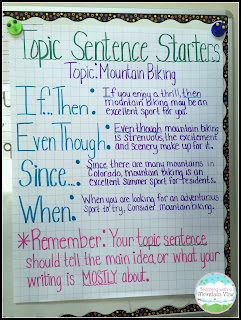 Topic Sentence Starters
Topic: Mountain Biking
If...Then: If you enjoy a thrill, then
mountain biking may be an
excellent sport for you.
Even Though: Even though mountain biking
is strenuous, the excitement
and scenery make up for it.
Since...: Since there are many mountains in
Colorado, mountain biking is an
excellent summer sport for residents.
When: When you are looking for an adventurous
sport to try, consider mountain biking.
*Remember: Your topic sentence
should tell the main idea, or what your
writing is MOSTLY about.
Teaching with a
Mountain View